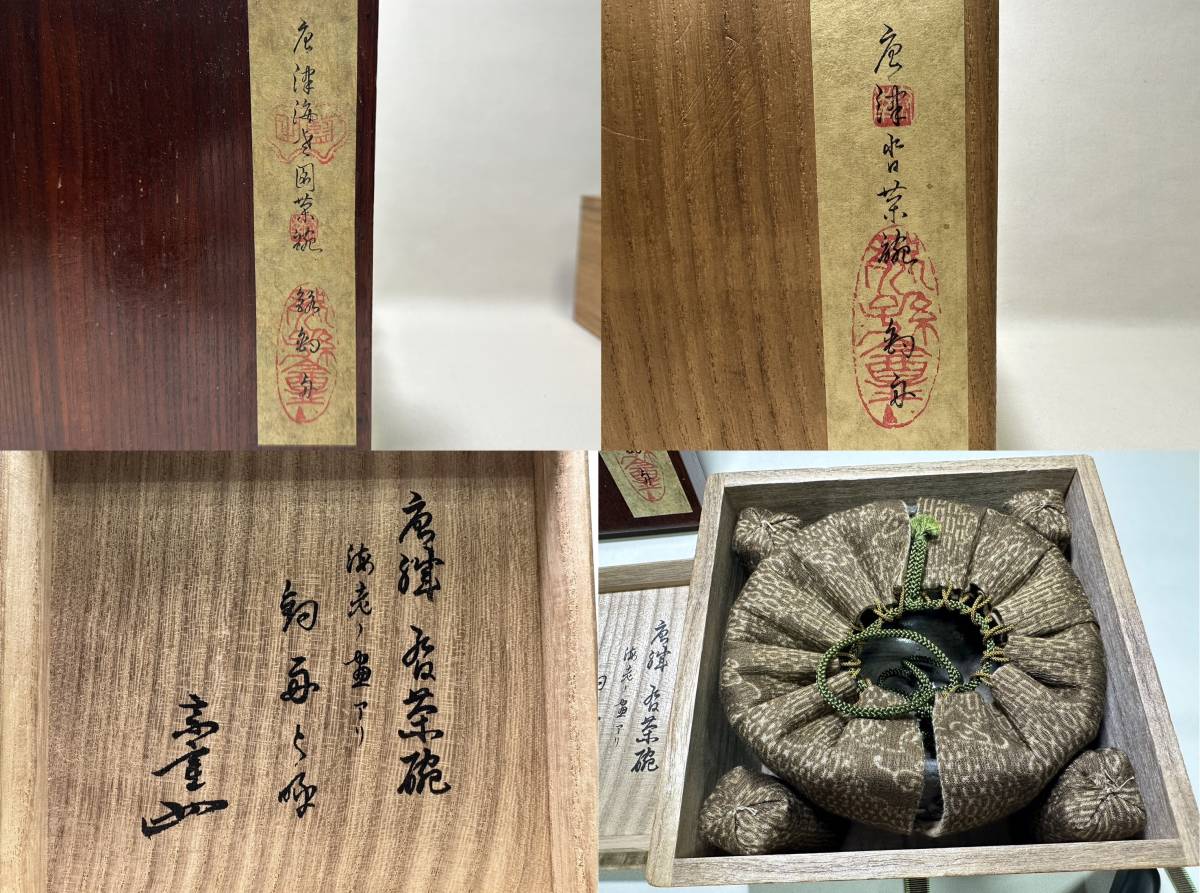 唐津海老圖茶碗 銘釣舟
唐津沓茶碗 釣舟
唐津 沓茶碗
海老ノ畫アリ
釣舟と号
唐津 沓茶碗
海老ノ畫アリ